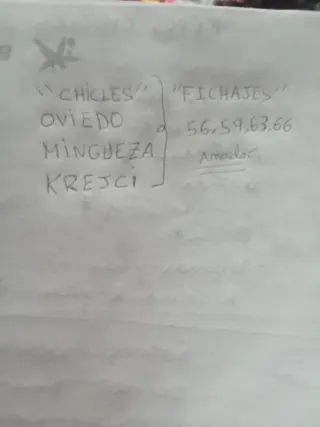 "CHICLES" "FICHAJES"
OVIEDO 56,59,63,66
MINGUEZA Amador
KREJCI